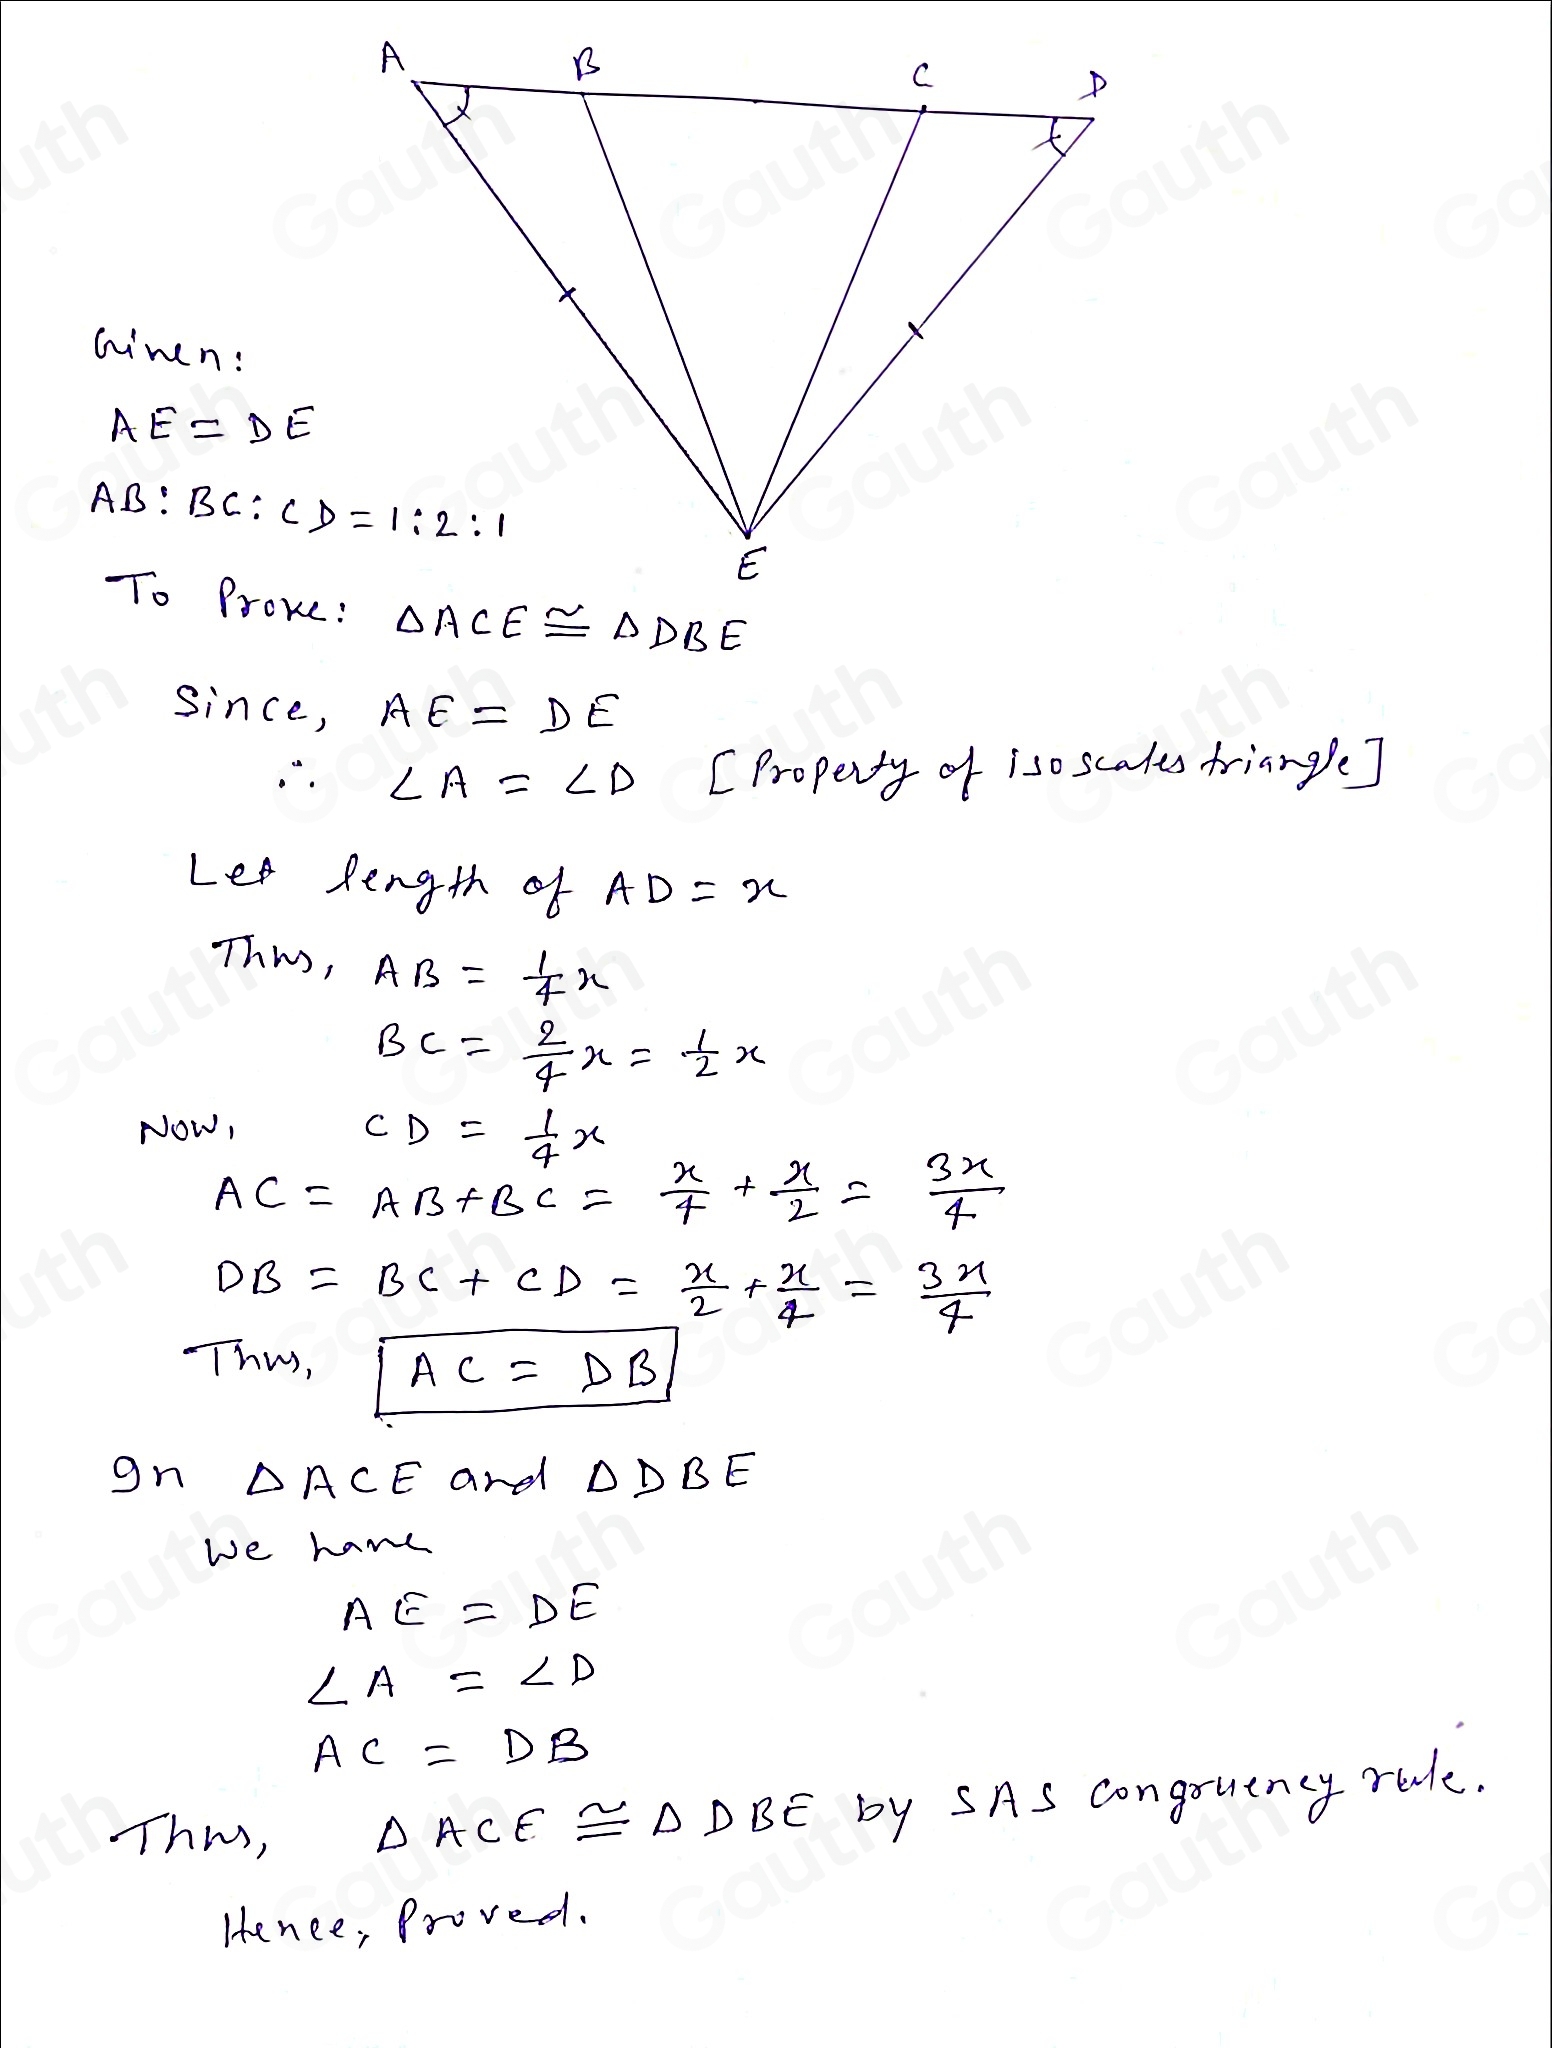 A B C D
E
Given:
AE = DE
AB : BC : CD = 1 : 2 : 1
To Prove: △ACE ≅ △DBE
Since, AE = DE
∴ ∠A = ∠D [Property of isoscales triangle]
Let length of AD = x
Thus, AB = 1/4 x
BC = 2/4 x = 1/2 x
Now, CD = 1/4 x
AC = AB + BC = x/4 + x/2 = 3x/4
DB = BC + CD = x/2 + x/4 = 3x/4
Thus, AC = DB
In △ACE and △DBE
We have
AE = DE
∠A = ∠D
AC = DB
Thus, △ACE ≅ △DBE by SAS congruency rule.
Hence, Proved.
Gauth